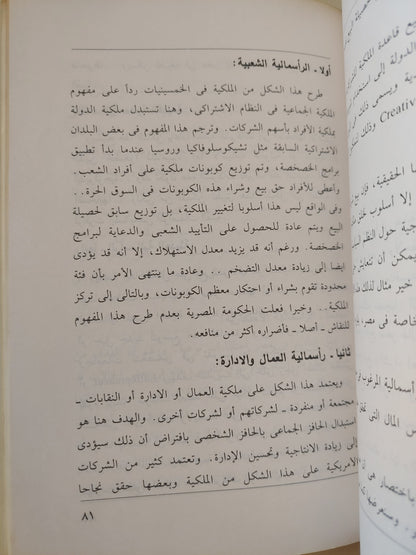 أولا - الرأسمالية الشعبية :
طرح هذا الشكل من الملكية في الخمسينيات رداً على مفهوم
الملكية الجماعية في النظام الاشتراكي، وهنا تستبدل ملكية الدولة
بملكية الأفراد بأسهم الشركات. وترجم هذا المفهوم في بعض البلدان
الاشتراكية السابقة مثل تشيكوسلوفاكيا وروسيا عندما بدأ تطبيق
برامج الخصخصة، وتم توزيع كوبونات ملكية على أفراد الشعب.
وأعطى للأفراد حق بيع وشراء هذه الكوبونات في السوق الحرة..
وفي الواقع ليس هذا أسلوبا لتغيير الملكية، بل توزيع سابق لحصيلة
البيع ويتم عادة للحصول على التأييد الشعبى والدعاية لبرامج
الخصخصة. ورغم أنه قد يزيد معدل الاستهلاك، إلا أنه قد يؤدى
ايضا إلى زيادة معدل التضخم .. وعادة ما ينتهى الأمر بأن فئة
محدودة تقوم بشراء أو احتكار معظم الكوبونات، وبالتالى إلى تركز
الملكية.. وخيرا فعلت الحكومة المصرية بعدم طرح هذا المفهوم
للنقاش ـ أصلا ـ فأضراره أكثر من منافعه.
ثانيا - رأسمالية العمال والادارة :
ويعتمد هذا الشكل على ملكية العمال أو الادارة أو النقابات ـ
مجتمعة أو منفردة ـ لشركاتهم أو لشركات أخرى. والهدف هنا هو
استبدال الحافز الجماعى بالحافز الشخصى بافتراض أن ذلك سيؤدى
إلى زيادة الانتاجية وتحسين الإدارة. وتعتمد كثير من الشركات
الأمريكية على هذا الشكل من الملكية وبعضها حقق نجاحا
٨١